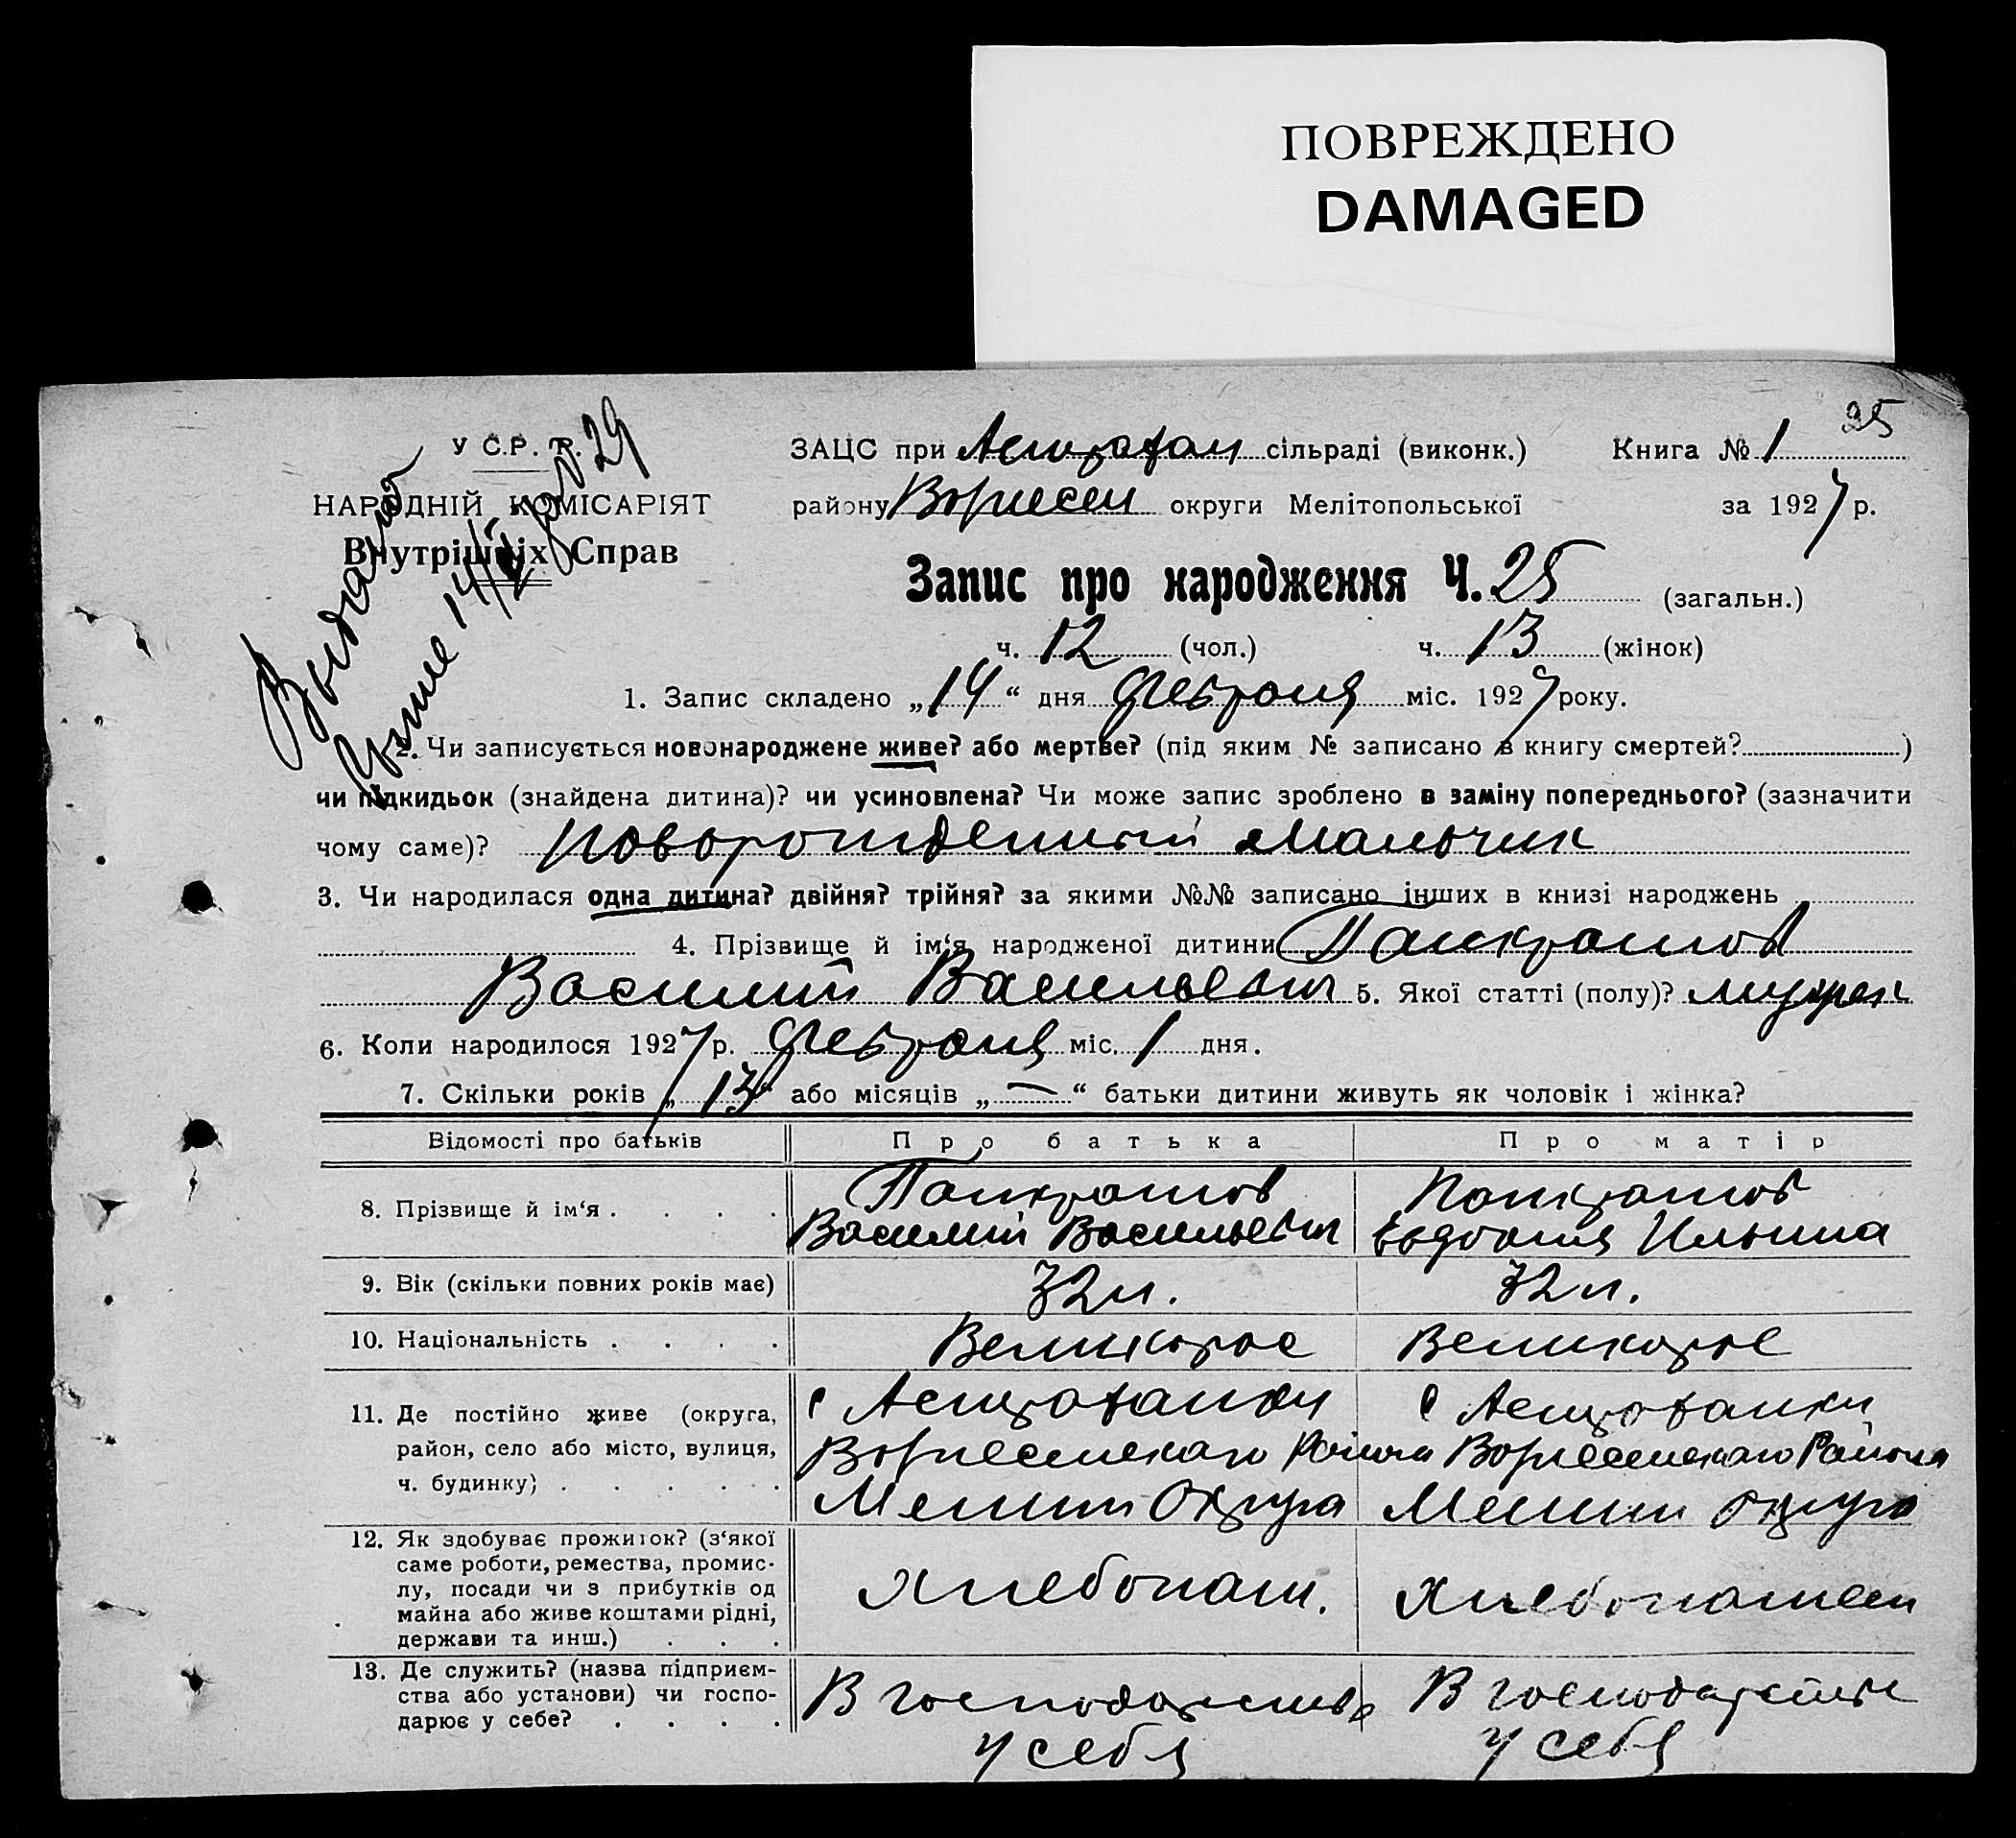 ПОВРЕЖДЕНО
DAMAGED
25
У С.Р. Р.
НАРОДНІЙ КОМІСАРІЯТ
Внутрішніх Справ
Выдано
14/ 29
ЗАЦС при Астрахан сільраді (виконк.) Книга № 1
району Вознесен округи Мелітопольської за 1927 р.
Запис про народження Ч. 25 (загальн.)
ч. 12 (чол.) ч. 13 (жінок)
1. Запис складено „14“ дня февраля міс. 1927 року.
2. Чи записується новонароджене живе? або мертве? (під яким № записано в книгу смертей? )
чи підкидьок (знайдена дитина)? чи усиновлена? Чи може запис зроблено в заміну попереднього? (зазначити
чому саме)? Новорожденный Мальчик
3. Чи народилася одна дитина? двійня? трійня? за якими №№ записано інших в книзі народжень
4. Прізвище й ім‘я народженої дитини Панкратов
Василий Васильевич 5. Якої статті (полу)? мужск
6. Коли народилося 1927 р. февраля міс. 1 дня.
7. Скільки років „13“ або місяців „—“ батьки дитини живуть як чоловік і жінка?
Відомості про батьків Про батька Про матір
8. Прізвище й ім‘я . . . . Панкратов Панкратов
Василий Васильевич Евдокия Ильина
9. Вік (скільки повних років має) 32 л. 32 л.
10. Національність . . . . Великорос Великорос
11. Де постійно живе (округа, с Астраханки с Астраханки
район, село або місто, вулиця, Вознесенскаго Района Вознесенскаго Района
ч. будинку) . . . . . Мелит Округа Мелит округа
12. Як здобуває прожиток? (з‘якої
саме роботи, ремества, промис-
лу, посади чи з прибутків од Хлебопаш. Хлебопашест
майна або живе коштами рідні,
держави та инш.) . . .
13. Де служить? (назва підприєм-
ства або установи) чи госпо- В господарстве В господарстве
дарює у себе? . . . . у себя у себя